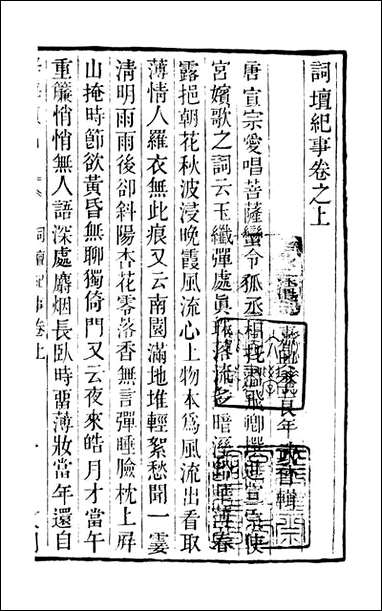 詞壇紀事卷之上
李良年 武曾 輯
唐宣宗愛唱菩薩蠻令狐丞相託溫飛卿撰進宣宗使
宮嬪歌之詞云玉纖彈處眞珠落流多暗溼鉛華薄春
露挹朝花秋波浸晚霞風流心上物本爲風流出看取
薄情人羅衣無此痕又云南園滿地堆輕絮愁聞一霎
清明雨雨後卻斜陽杏花零落香無言彈睡臉枕上屛
山掩時節欲黃昏無聊獨倚門又云夜來皓月才當午
重簾悄悄無人語深處麝烟長臥時畱薄妝當年還自
詞壇紀事卷上 一